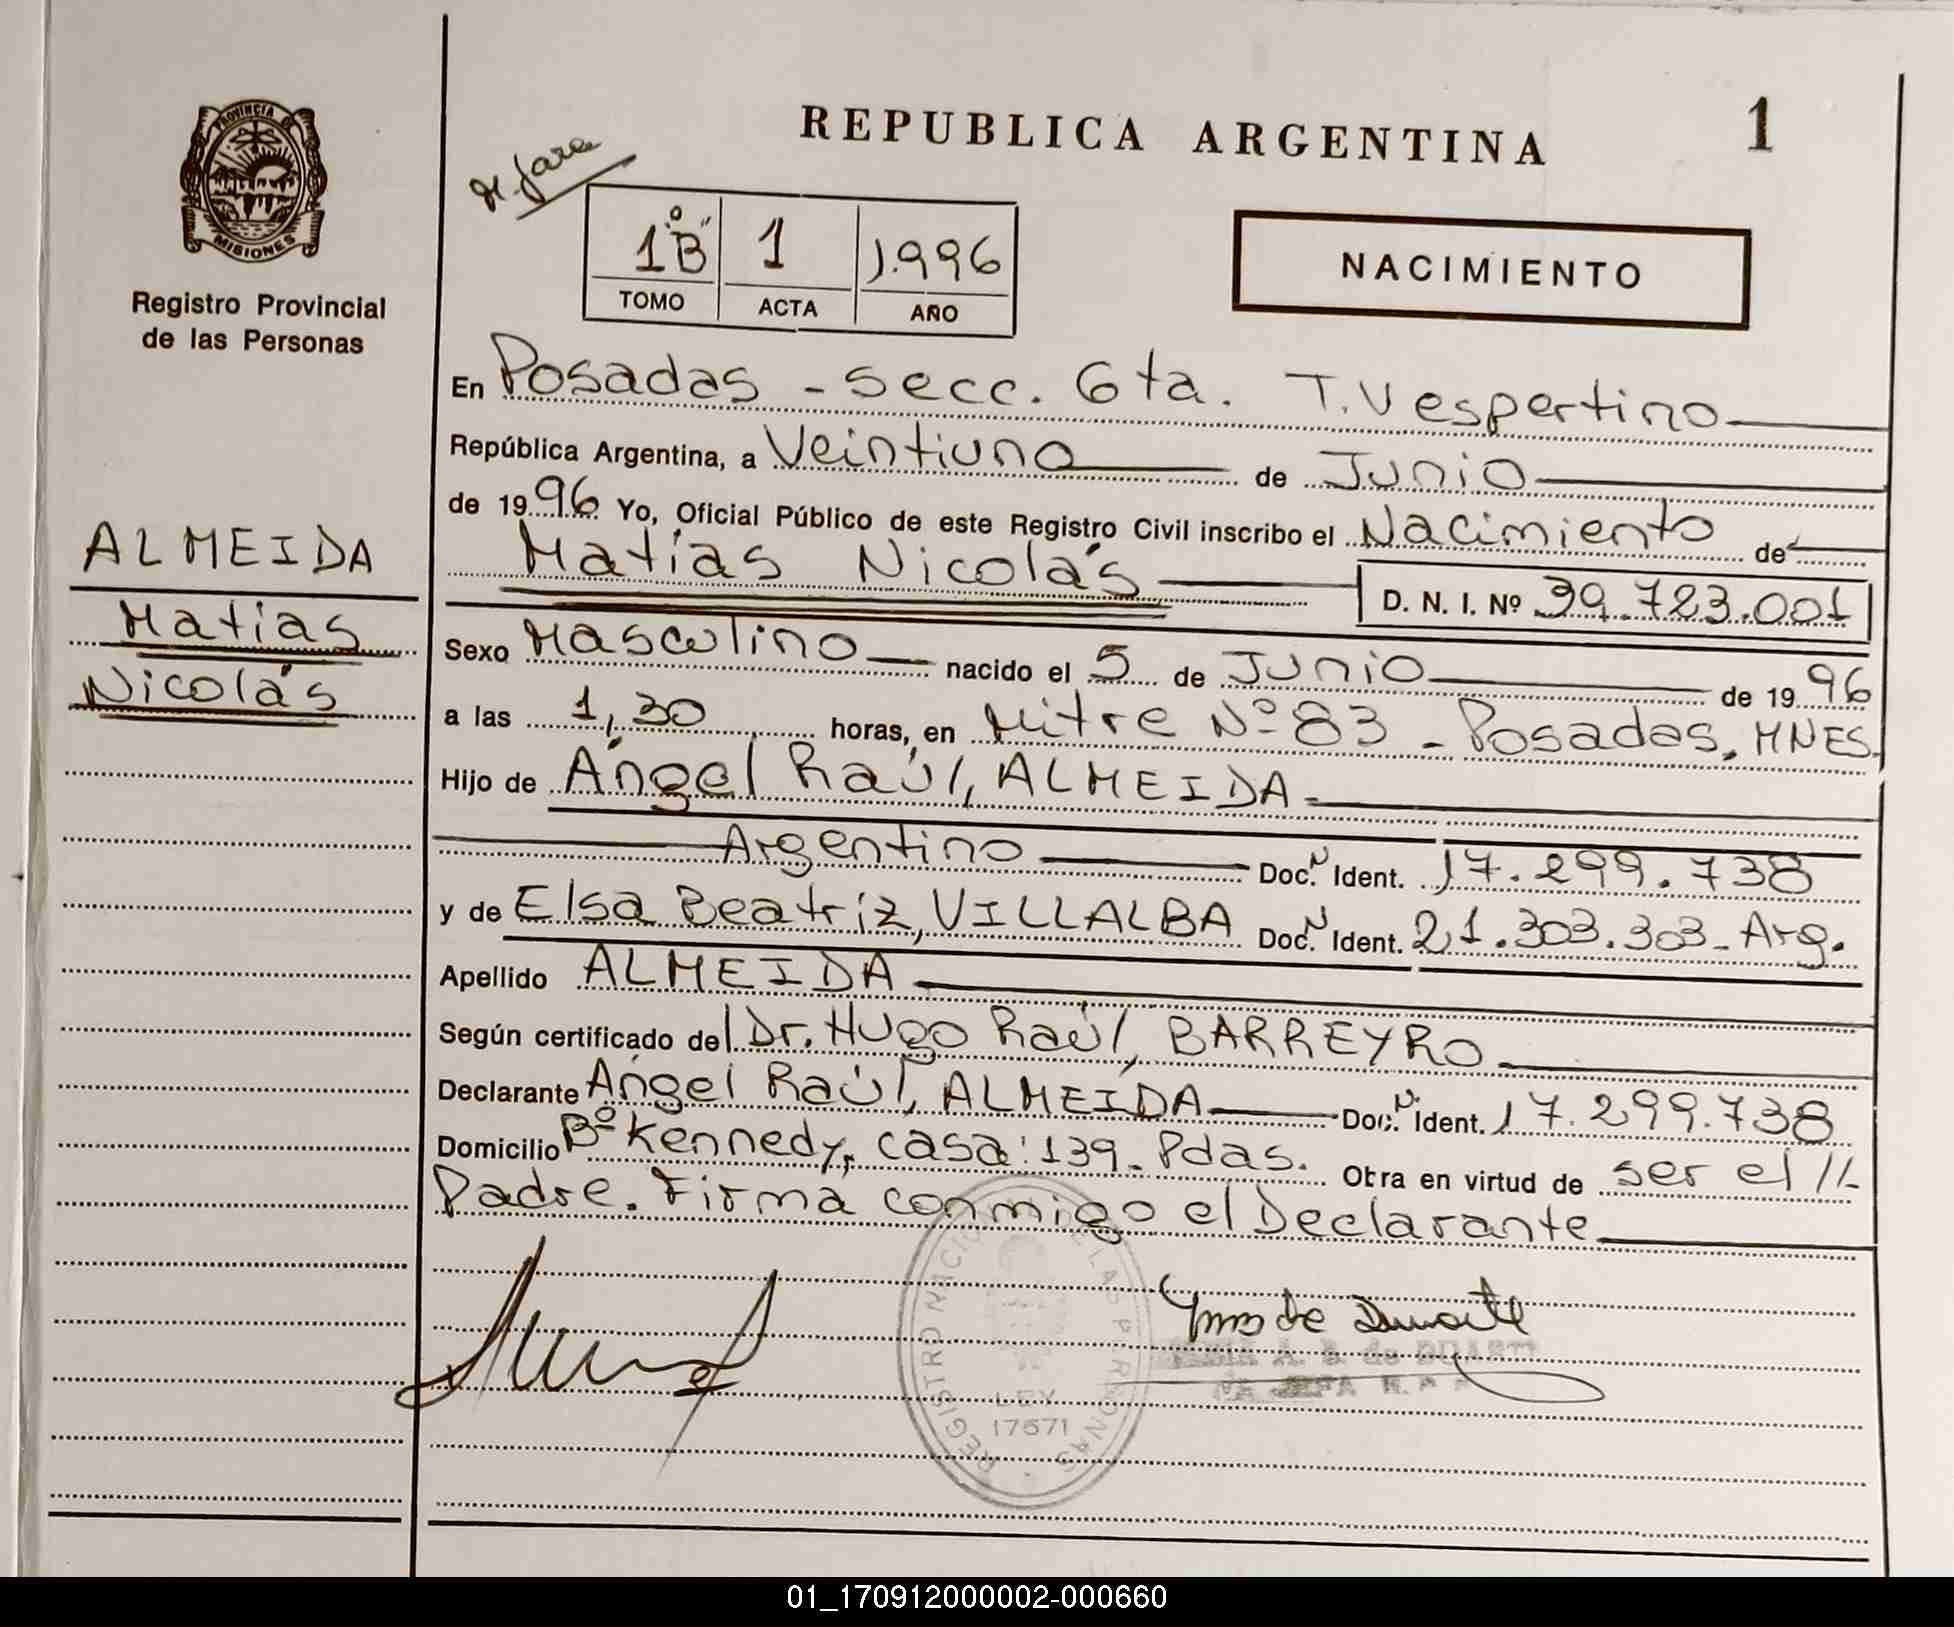 REPUBLICA ARGENTINA
1
PROVINCIA DE
MISIONES
Registro Provincial
de las Personas
1º B"
1
1.996
TOMO
ACTA
AÑO
NACIMIENTO
En Posadas - Secc. 6ta. T. Vespertino
República Argentina, a Veintiuno de Junio
de 1996 Yo, Oficial Público de este Registro Civil inscribo el Nacimiento de
Matías Nicolás D. N. I. Nº 39.723.001
ALMEIDA
Matías
Nicolás
Sexo Masculino nacido el 5 de Junio de 1996
a las 1,30 horas, en Mitre Nº 83 - Posadas, MNES.
Hijo de Ángel Raúl, ALMEIDA
Argentino Doc. N Ident. 17.299.738
y de Elsa Beatriz, VILLALBA Doc. N Ident. 21.303.303 - Arg.
Apellido ALMEIDA
Según certificado del Dr. Hugo Raúl, BARREYRO
Declarante Ángel Raúl, ALMEIDA Doc. N Ident. 17.299.738
Domicilio Bº Kennedy, casa: 139 - Pdas. Obra en virtud de ser el //-
Padre. Firma conmigo el Declarante
REGISTRO NACIONAL DE LAS PERSONAS
LEY
17671
de Duarte
A. S. de DUARTE
01_170912000002-000660